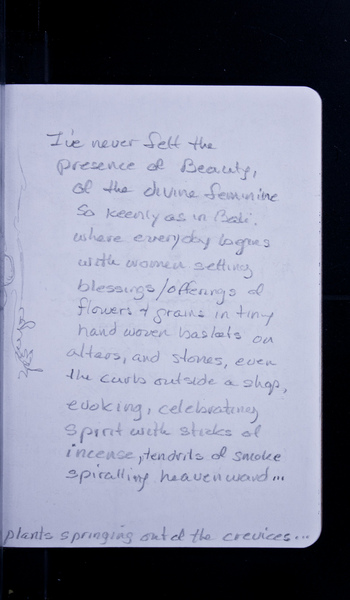 I've never felt the
presence of Beauty,
of the divine feminine
so keenly as in Bali.
where everyday begins
with women setting
blessings/offerings of
flowers + grains in tiny
hand woven baskets on
alters, and stones, even
the curb outside a shop,
evoking, celebrating
spirit with sticks of
incense, tendrils of smoke
spiralling heavenward...
plants springing out of the crevices...